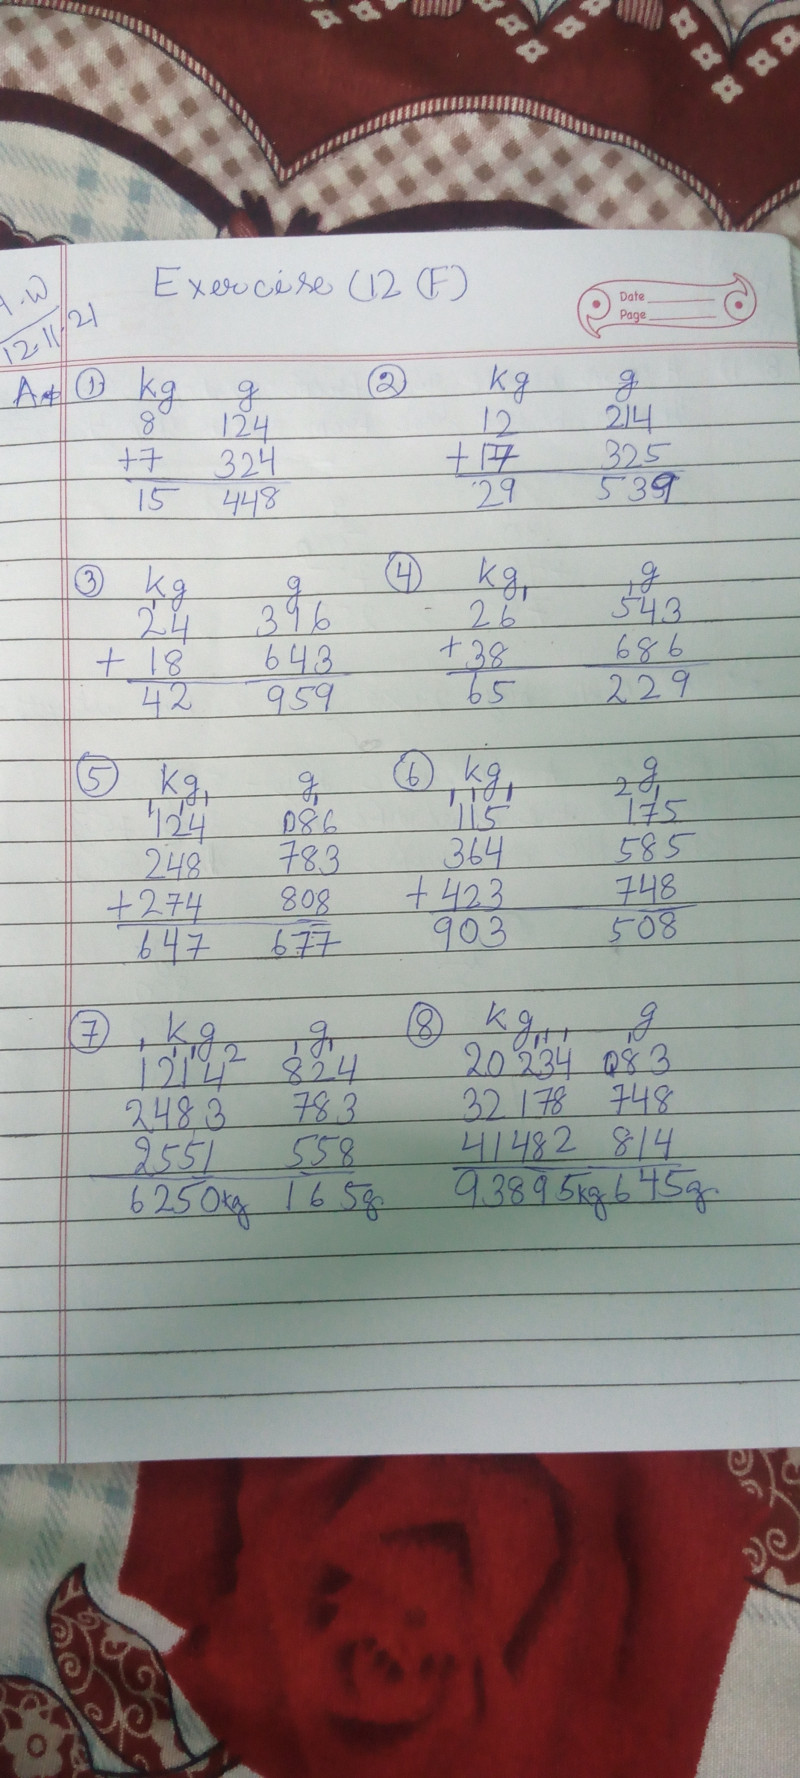 Exercise (12 (F)
Date
Page
12.11.21
Ans ① kg g ② kg g
8 124 12 214
+7 324 +17 325
15 448 29 539
③ kg g ④ kg g
24 316 26 543
+ 18 643 +38 686
42 959 65 229
⑤ kg g ⑥ kg g
124 086 115 175
248 783 364 585
+274 808 +423 748
647 677 903 508
⑦ kg g ⑧ kg g
1214 824 20234 083
2483 783 32178 748
2551 558 41482 814
6250kg 165g 93895kg 645g